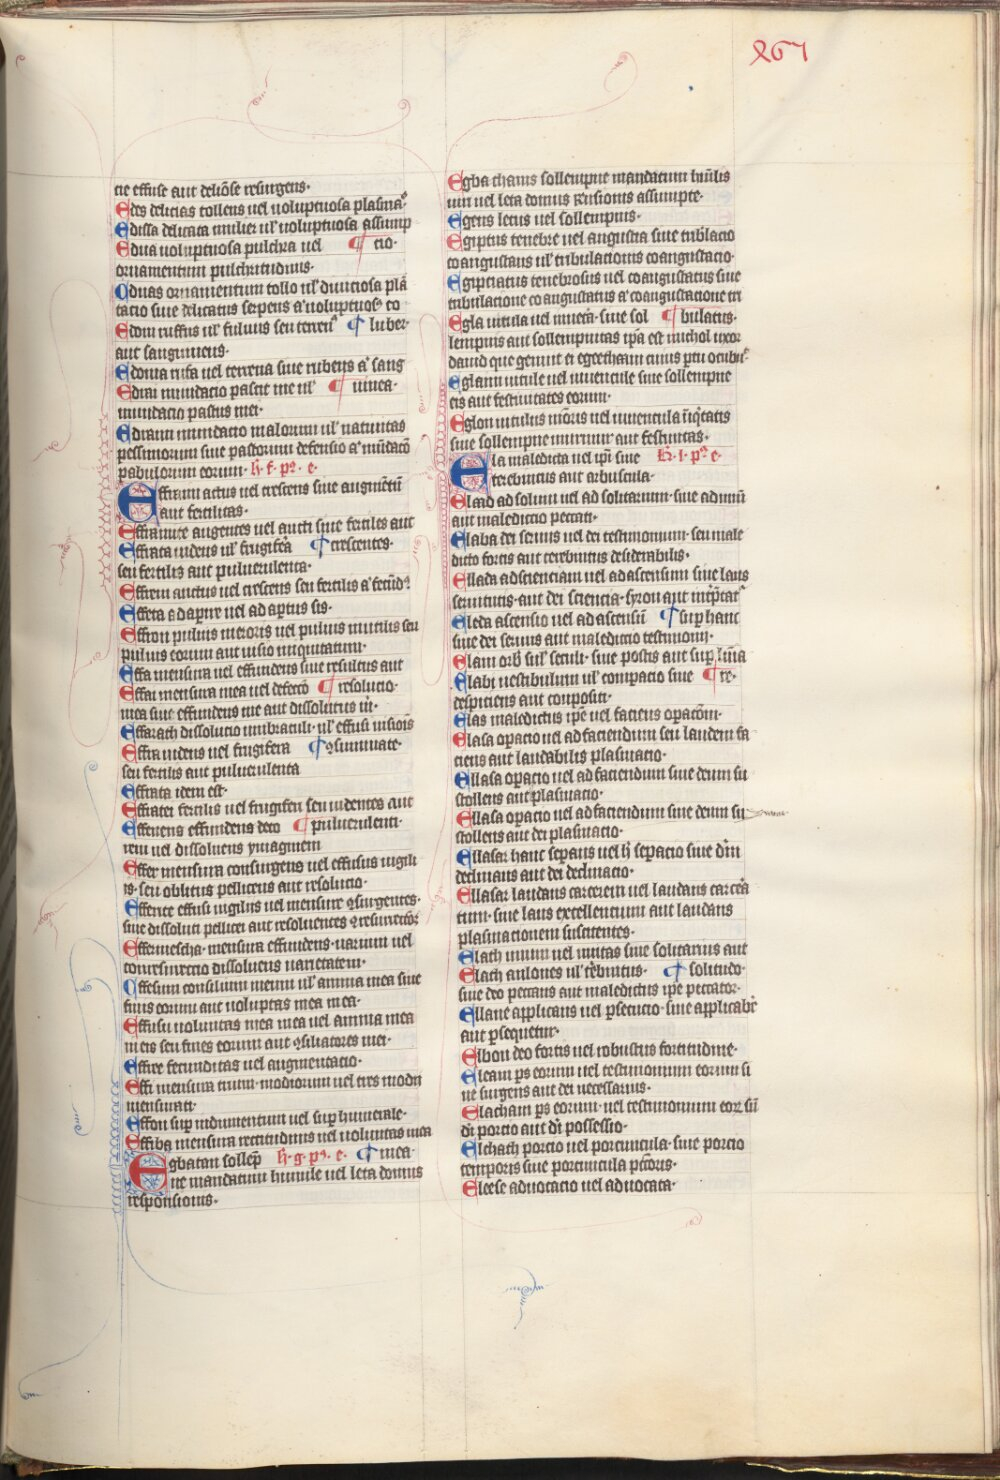 267
cie effuse aut deliose resurgens·
Edes delicias tollens uel uoluptuosa plasma
Edissa delicata mulier ul' uoluptuosa assump
Edua uoluptuosa pulchra uel ¶ cio·
ornamentum pulchritudinis·
Eduas ornamentum tollo ul' diuiciosa pla
tacio siue delicatus serpens a' uoluptuose co
Edom ruffus ul' fuluus seu terren ¶ luber·
aut sanguineus·
Edoma rufa uel terrena siue rubens a' sang
Edrai inundacio pascit me ul' ¶ uinea·
inundacio pastus mei·
Edrami inundacio malorum ul' natiuitas
pessimorum siue pastorum defensio a'
pabulorum eorum· h· f· p'· e·
Effraim actus uel crescens siue
aut fertilitas·
Effraimite augentes uel aucti siue fertiles aut
Effrata uidens ul' frugifera ¶ crescentes·
seu fertilis aut puluerulenta·
Effrem auctus uel crescens seu fertilis a'
Effeta adaperire uel adaptus sis·
Effron puluis meroris uel puluis inutilis seu
puluis eorum aut uisio iniquitatum·
Effa mensura uel effundens siue resultus aut
Effai mensura mea uel defecto ¶ resolucio·
mea siue effundens me aut dissolutus
Effarach dissolucio umbraculi· ul' effusi
Effra uidens uel frugifera ¶ 9summate·
seu fertilis aut puluerulenta
Effrata idem est·
Effratei fertilis uel frugiferi seu uidentes aut
Effeneus effundens deco ¶ puluerulenti·
rem uel dissoluens ymaginem
Effer mensura consurgens uel effusus uigili
is· seu oblitus pelliceus aut resolucio·
Efferite effusi uigilus uel mensure 9surgentes·
siue dissoluti pellicei aut resoluentes
Effermescha· mensura effundens· uarium uel
dissoluens uarietatem·
Effesim consilium meum ul' anima mea siue
finis eorum aut uoluptas mea mea·
Effusu uoluntas mea mea uel anima mea
in eis seu fines eorum aut 9siliatores mei·
Effire fecunditas uel augmentacio·
Effi mensura trium· modiorum uel tres modii
mensurati·
Effon sup indumentum uel sup humerale·
Effiba mensura rectitudinis uel uoluntas mea
Egbatan sollep h· g· p'· e· ¶ mea·
ne mandatum humile uel leta domus
responsionis·
Egba thanis sollempne mandatum
uin uel leta domus assumpte·
Egens letus uel sollempnis·
Egiptus tenebre uel angustia siue
coangustans ul' tribulacionis coangustacio·
Egiptiatus tenebrosus uel coangustatus siue
tribulacione coangustatus a' coangustacione tri
Egla uitula uel siue sol ¶ bulatus·
lempnis aut sollempnitas ipa est michol uxor
dauid que genuit ei egetham cuius
Eglaim uitule uel iuuencule siue sollempne
eis aut festiuitates eorum·
Eglon uitulus uel iuuencula
siue sollempne aut festiuitas·
Ela maledicta uel ipi siue h· l· p'· e·
terebintus aut arbuscula·
Elaad ad solum uel ad solitarium· siue
aut maledictio peccati·
Elaba dei seruus uel dei testimonium· seu male
dicto fortis aut terebintus desiderabilis·
Ellada ad scienciam uel ad ascensum siue laus
seruitutis· aut dei sciencia· syron aut
Eleda ascensio uel ad ¶ sup hanc
siue dei seruus aut maledictio testimonii·
Elam orbis siue seculi· siue postis aut sup
Elabi uestibulum ul' compacio siue ¶ re·
despiciens aut conpositi·
Elas maledictus ipe uel faciens
Elasa opacio uel ad faciendum seu laudem fa
ciens aut laudabilis plasmacio·
Ellasa opacio uel ad faciendum siue deum su
stollens aut plasmacio·
Ellasa opacio uel ad faciendum siue deum su
stollens aut dei plasmacio·
Ellasar hanc separans uel h sepacio siue
declinans aut dei declinacio·
Ellasar laudans carcerem uel laudans
tum· siue laus excellentium aut laudans
plasmacionem suscitentes·
Elach unum uel unitas siue solitarius aut
Elach aulones ul' ¶ solitudo·
siue deo peccans aut maledictus ipe peccator·
Ellane applicans uel psecucio· siue
aut psequetur·
Elbon deo fortis uel robustus fortitudine·
Eleam ps eorum uel testimonium eorum si
ue surgens aut dei necessarius·
Elacham ps eorum· uel testimonium
di porcio aut di possessio·
Elchath porcio uel porciuncula· siue porcio
temporis siue porciuncula
Eleese aduocacio uel aduocata·